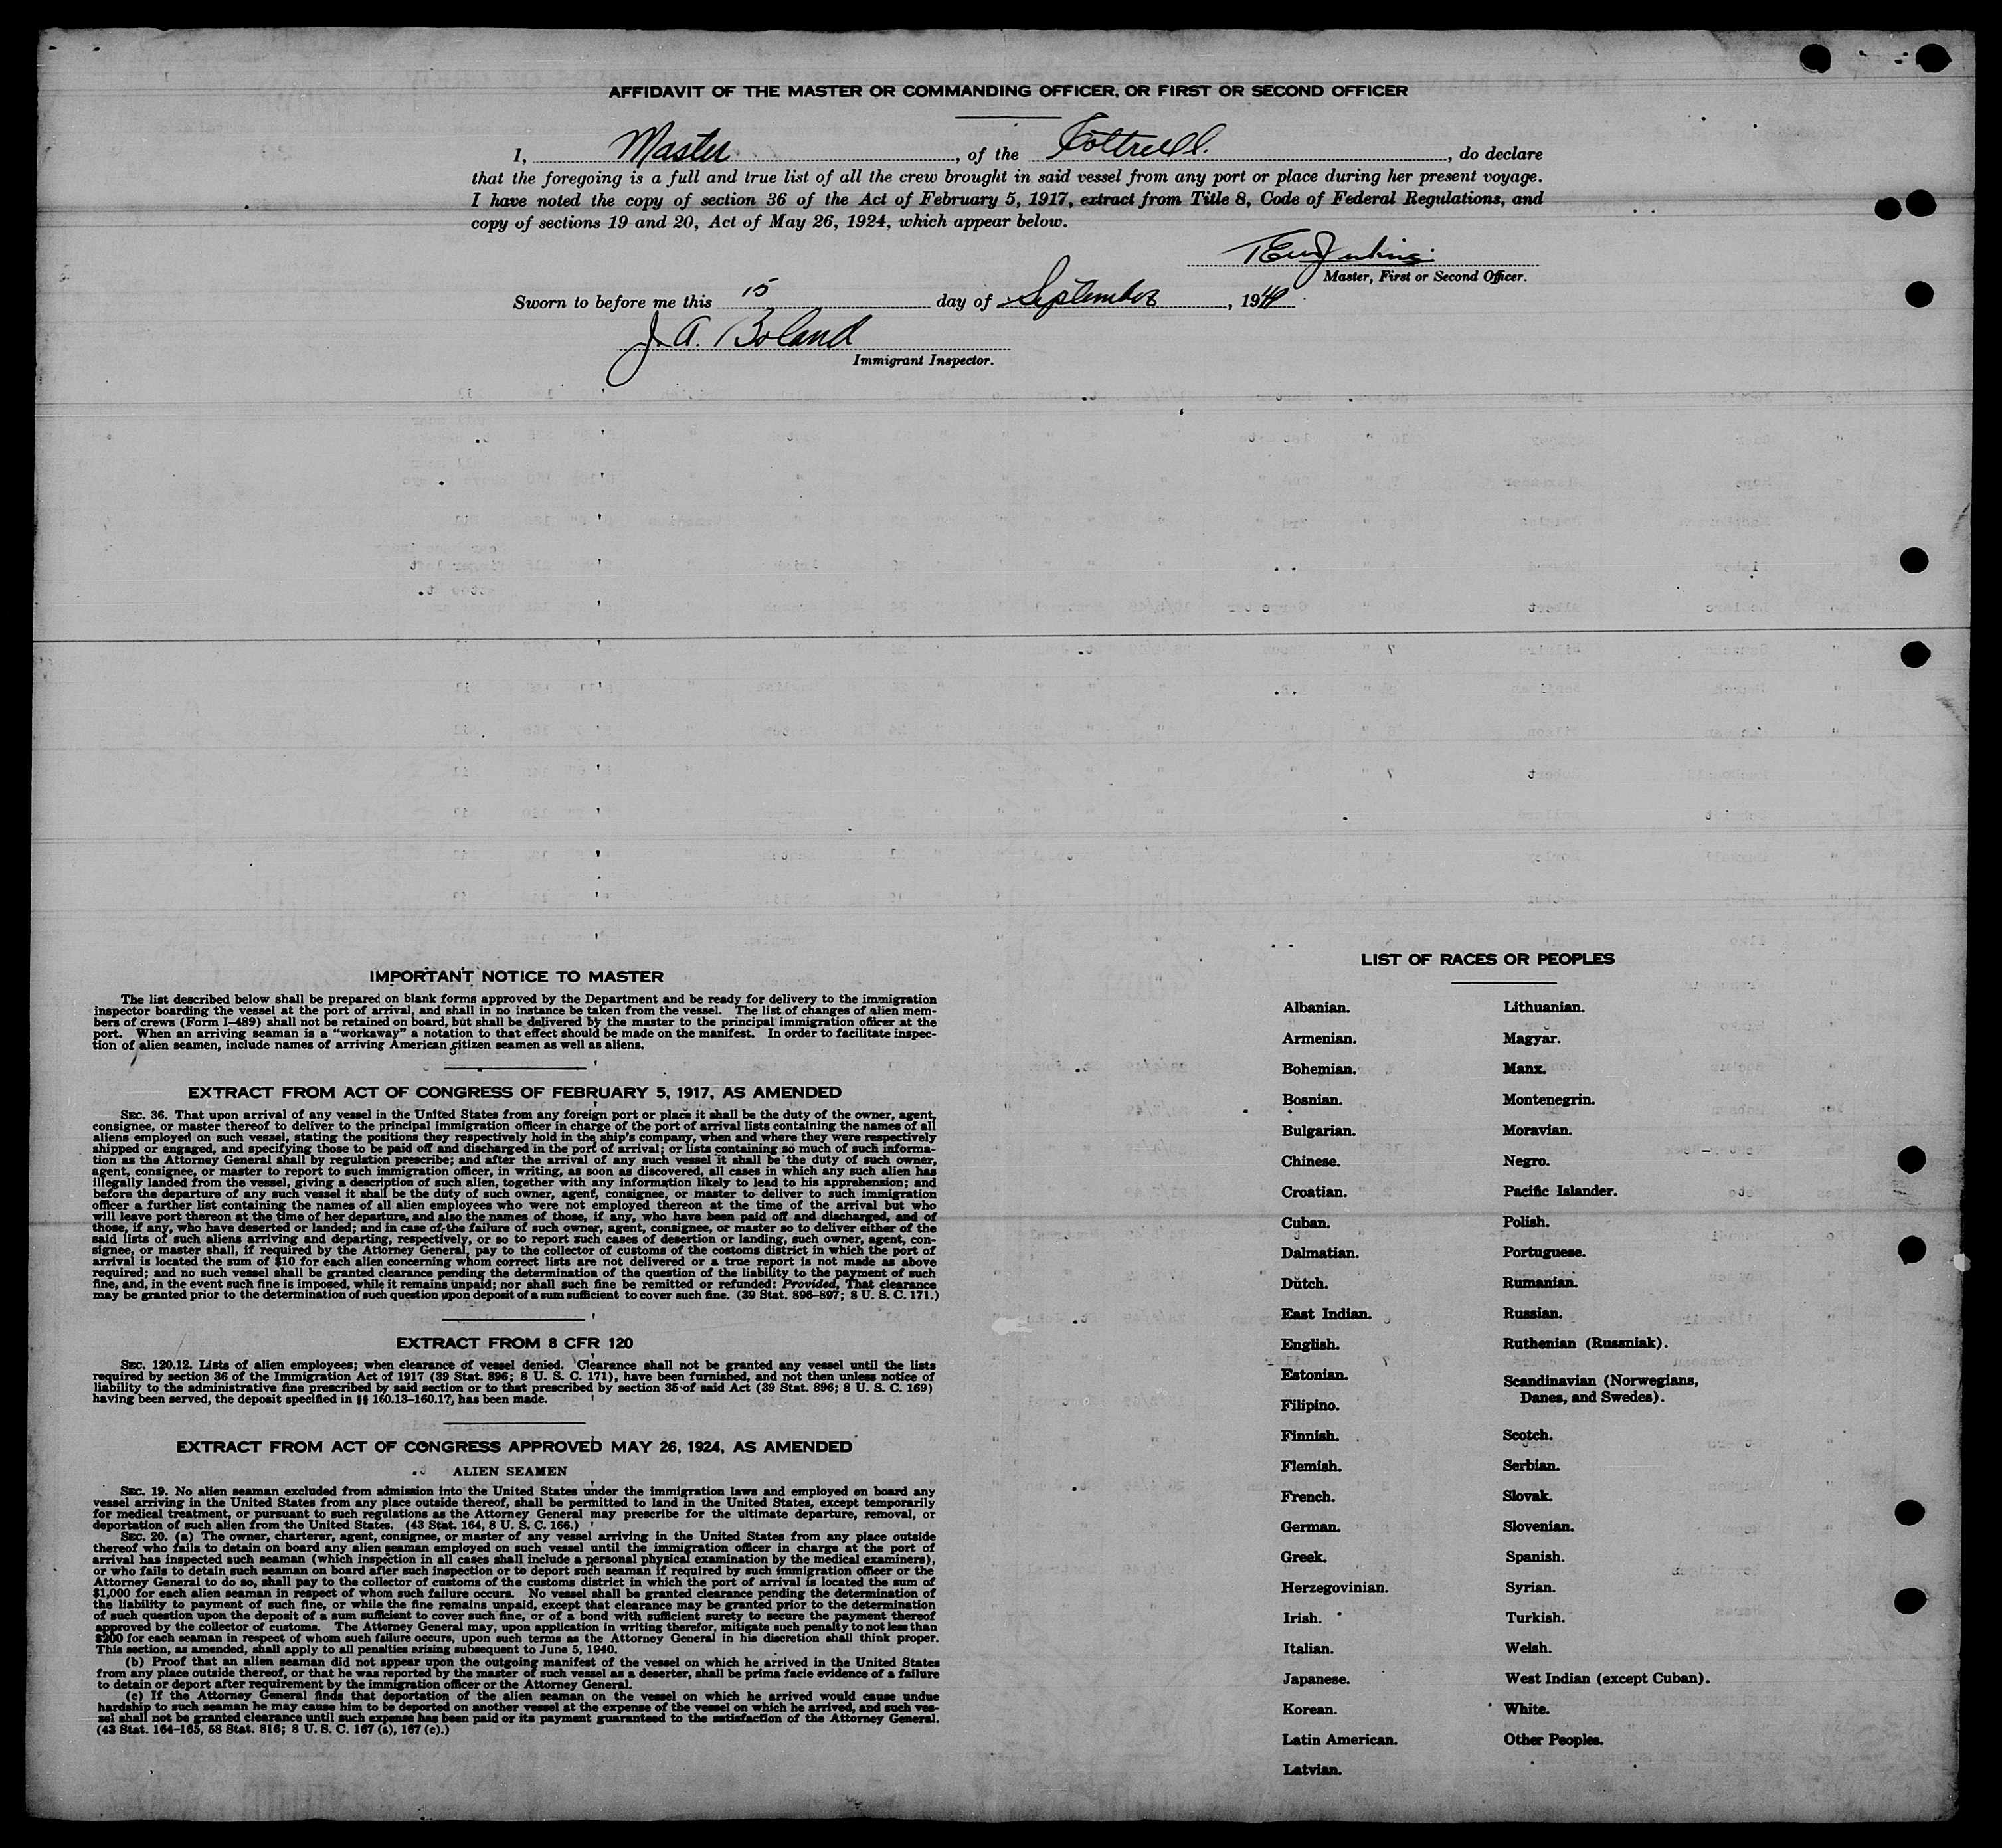 AFFIDAVIT OF THE MASTER OR COMMANDING OFFICER, OR FIRST OR SECOND OFFICER
I, Master, of the Cottrell, do declare
that the foregoing is a full and true list of all the crew brought in said vessel from any port or place during her present voyage.
I have noted the copy of section 36 of the Act of February 5, 1917, extract from Title 8, Code of Federal Regulations, and
copy of sections 19 and 20, Act of May 26, 1924, which appear below.
Master, First or Second Officer.
Sworn to before me this 15 day of September, 1949
J. A. Boland
Immigrant Inspector.
IMPORTANT NOTICE TO MASTER
The list described below shall be prepared on blank forms approved by the Department and be ready for delivery to the immigration
inspector boarding the vessel at the port of arrival, and shall in no instance be taken from the vessel. The list of changes of alien mem-
bers of crews (Form I–489) shall not be retained on board, but shall be delivered by the master to the principal immigration officer at the
port. When an arriving seaman is a "workaway" a notation to that effect should be made on the manifest. In order to facilitate inspec-
tion of alien seamen, include names of arriving American citizen seamen as well as aliens.
EXTRACT FROM ACT OF CONGRESS OF FEBRUARY 5, 1917, AS AMENDED
SEC. 36. That upon arrival of any vessel in the United States from any foreign port or place it shall be the duty of the owner, agent,
consignee, or master thereof to deliver to the principal immigration officer in charge of the port of arrival lists containing the names of all
aliens employed on such vessel, stating the positions they respectively hold in the ship's company, when and where they were respectively
shipped or engaged, and specifying those to be paid off and discharged in the port of arrival; or lists containing so much of such informa-
tion as the Attorney General shall by regulation prescribe; and after the arrival of any such vessel it shall be the duty of such owner,
agent, consignee, or master to report to such immigration officer, in writing, as soon as discovered, all cases in which any such alien has
illegally landed from the vessel, giving a description of such alien, together with any information likely to lead to his apprehension; and
before the departure of any such vessel it shall be the duty of such owner, agent, consignee, or master to deliver to such immigration
officer a further list containing the names of all alien employees who were not employed thereon at the time of the arrival but who
will leave port thereon at the time of her departure, and also the names of those, if any, who have been paid off and discharged, and of
those, if any, who have deserted or landed; and in case of the failure of such owner, agent, consignee, or master so to deliver either of the
said lists of such aliens arriving and departing, respectively, or so to report such cases of desertion or landing, such owner, agent, con-
signee, or master shall, if required by the Attorney General, pay to the collector of customs of the costoms district in which the port of
arrival is located the sum of $10 for each alien concerning whom correct lists are not delivered or a true report is not made as above
required; and no such vessel shall be granted clearance pending the determination of the question of the liability to the payment of such
fine, and, in the event such fine is imposed, while it remains unpaid; nor shall such fine be remitted or refunded: Provided, That clearance
may be granted prior to the determination of such question upon deposit of a sum sufficient to cover such fine. (39 Stat. 896–897; 8 U. S. C. 171.)
EXTRACT FROM 8 CFR 120
SEC. 120.12. Lists of alien employees; when clearance of vessel denied. Clearance shall not be granted any vessel until the lists
required by section 36 of the Immigration Act of 1917 (39 Stat. 896; 8 U. S. C. 171), have been furnished, and not then unless notice of
liability to the administrative fine prescribed by said section or to that prescribed by section 35 of said Act (39 Stat. 896; 8 U. S. C. 169)
having been served, the deposit specified in §§ 160.13–160.17, has been made.
EXTRACT FROM ACT OF CONGRESS APPROVED MAY 26, 1924, AS AMENDED
ALIEN SEAMEN
SEC. 19. No alien seaman excluded from admission into the United States under the immigration laws and employed on board any
vessel arriving in the United States from any place outside thereof, shall be permitted to land in the United States, except temporarily
for medical treatment, or pursuant to such regulations as the Attorney General may prescribe for the ultimate departure, removal, or
deportation of such alien from the United States. (43 Stat. 164, 8 U. S. C. 166.)
SEC. 20. (a) The owner, charterer, agent, consignee, or master of any vessel arriving in the United States from any place outside
thereof who fails to detain on board any alien seaman employed on such vessel until the immigration officer in charge at the port of
arrival has inspected such seaman (which inspection in all cases shall include a personal physical examination by the medical examiners),
or who fails to detain such seaman on board after such inspection or to deport such seaman if required by such immigration officer or the
Attorney General to do so, shall pay to the collector of customs of the customs district in which the port of arrival is located the sum of
$1,000 for each alien seaman in respect of whom such failure occurs. No vessel shall be granted clearance pending the determination of
the liability to payment of such fine, or while the fine remains unpaid, except that clearance may be granted prior to the determination
of such question upon the deposit of a sum sufficient to cover such fine, or of a bond with sufficient surety to secure the payment thereof
approved by the collector of customs. The Attorney General may, upon application in writing therefor, mitigate such penalty to not less than
$200 for each seaman in respect of whom such failure occurs, upon such terms as the Attorney General in his discretion shall think proper.
This section, as amended, shall apply to all penalties arising subsequent to June 5, 1940.
(b) Proof that an alien seaman did not appear upon the outgoing manifest of the vessel on which he arrived in the United States
from any place outside thereof, or that he was reported by the master of such vessel as a deserter, shall be prima facie evidence of a failure
to detain or deport after requirement by the immigration officer or the Attorney General.
(c) If the Attorney General finds that deportation of the alien seaman on the vessel on which he arrived would cause undue
hardship to such seaman he may cause him to be deported on another vessel at the expense of the vessel on which he arrived, and such ves-
sel shall not be granted clearance until such expense has been paid or its payment guaranteed to the satisfaction of the Attorney General.
(43 Stat. 164–165, 58 Stat. 816; 8 U. S. C. 167 (a), 167 (e).)
LIST OF RACES OR PEOPLES
Albanian.
Armenian.
Bohemian.
Bosnian.
Bulgarian.
Chinese.
Croatian.
Cuban.
Dalmatian.
Dutch.
East Indian.
English.
Estonian.
Filipino.
Finnish.
Flemish.
French.
German.
Greek.
Herzegovinian.
Irish.
Italian.
Japanese.
Korean.
Latin American.
Latvian.
Lithuanian.
Magyar.
Manx.
Montenegrin.
Moravian.
Negro.
Pacific Islander.
Polish.
Portuguese.
Rumanian.
Russian.
Ruthenian (Russniak).
Scandinavian (Norwegians,
Danes, and Swedes).
Scotch.
Serbian.
Slovak.
Slovenian.
Spanish.
Syrian.
Turkish.
Welsh.
West Indian (except Cuban).
White.
Other Peoples.